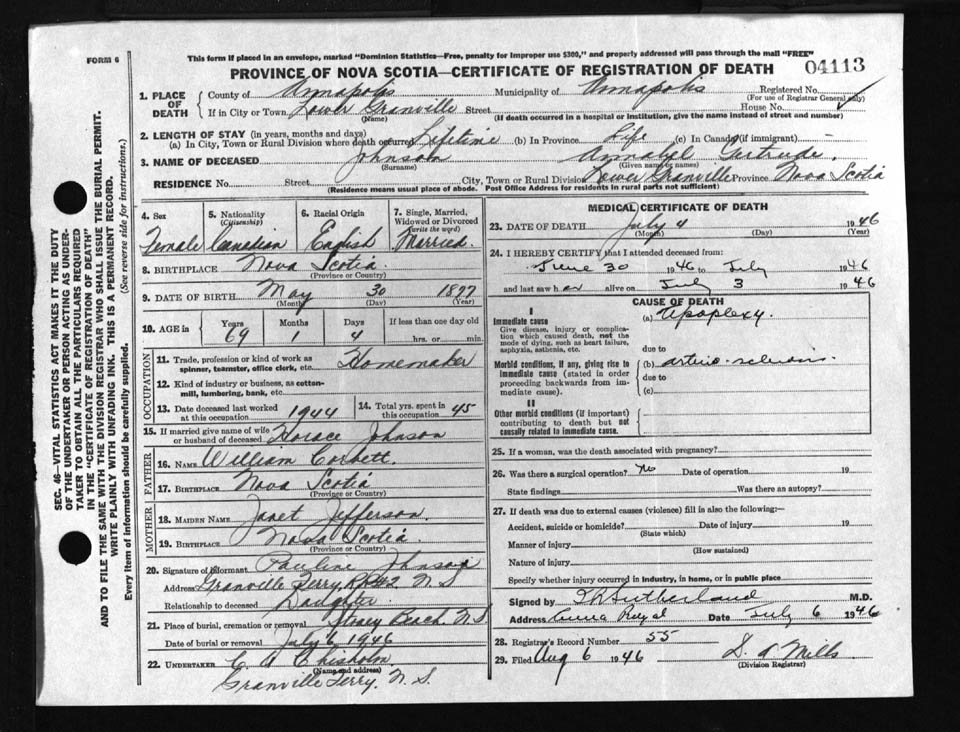 FORM 6
This form if placed in an envelope, marked "Dominion Statistics—Free, penalty for improper use $300," and properly addressed will pass through the mail "FREE"
PROVINCE OF NOVA SCOTIA—CERTIFICATE OF REGISTRATION OF DEATH 04113
1. PLACE OF DEATH
County of Annapolis Municipality of Annapolis Registered No.
(For use of Registrar General only)
If in City or Town Lower Granville Street House No.
(Name) (If death occurred in a hospital or institution, give the name instead of street and number)
2. LENGTH OF STAY (in years, months and days)
(a) In City, Town or Rural Division where death occurred Lifetime (b) In Province Life (c) In Canada (if immigrant)
3. NAME OF DECEASED Johnson Annabel Gertrude.
(Surname) (Given name or names)
RESIDENCE No. Street City, Town or Rural Division Lower Granville Province Nova Scotia
(Residence means usual place of abode. Post Office Address for residents in rural parts not sufficient)
SEC. 46—VITAL STATISTICS ACT MAKES IT THE DUTY
OF THE UNDERTAKER OR PERSON ACTING AS UNDER-
TAKER TO OBTAIN ALL THE PARTICULARS REQUIRED
IN THE "CERTIFICATE OF REGISTRATION OF DEATH"
AND TO FILE THE SAME WITH THE DIVISION REGISTRAR WHO SHALL ISSUE THE BURIAL PERMIT.
WRITE PLAINLY WITH UNFADING INK. THIS IS A PERMANENT RECORD.
Every item of information should be carefully supplied. (See reverse side for instructions.)
4. Sex 5. Nationality (Citizenship) 6. Racial Origin 7. Single, Married, Widowed or Divorced (write the word)
Female Canadian English Married
8. BIRTHPLACE Nova Scotia
(Province or Country)
9. DATE OF BIRTH May 30 1877
(Month) (Day) (Year)
10. AGE in Years Months Days If less than one day old
69 1 4 hrs. or min.
OCCUPATION
11. Trade, profession or kind of work as spinner, teamster, office clerk, etc. Homemaker
12. Kind of industry or business, as cotton-mill, lumbering, bank, etc.
13. Date deceased last worked at this occupation 1944 14. Total yrs. spent in this occupation 45
15. If married give name of wife or husband of deceased Horace Johnson
FATHER
16. NAME William Corbett.
17. BIRTHPLACE Nova Scotia
(Province or Country)
MOTHER
18. MAIDEN NAME Janet Jefferson.
19. BIRTHPLACE Nova Scotia.
(Province or Country)
20. Signature of informant Pauline Johnson
Address Granville Ferry RR#2 N S
Relationship to deceased Daughter
21. Place of burial, cremation or removal Stoney Beach. N.S
Date of burial or removal July 6, 1946
22. UNDERTAKER C A Chisholm
(Name and address)
Granville Ferry. N. S.
MEDICAL CERTIFICATE OF DEATH
23. DATE OF DEATH July 4 1946
(Month) (Day) (Year)
24. I HEREBY CERTIFY that I attended deceased from:
June 30 1946 to July 1946
and last saw her alive on July 3 1946
CAUSE OF DEATH
I
Immediate cause (a) Apoplexy.
Give disease, injury or complica-
tion which caused death, not the
mode of dying, such as heart failure,
asphyxia, asthenia, etc.
due to
Morbid conditions, if any, giving rise to (b) arterio-sclerosis.
immediate cause (stated in order due to
proceeding backwards from im- (c)
mediate cause).
II
Other morbid conditions (if important)
contributing to death but not
causally related to immediate cause.
25. If a woman, was the death associated with pregnancy?
26. Was there a surgical operation? No Date of operation 19
State findings Was there an autopsy?
27. If death was due to external causes (violence) fill in also the following:—
Accident, suicide or homicide? Date of injury 19
(State which)
Manner of injury
(How sustained)
Nature of injury
Specify whether injury occurred in industry, in home, or in public place
Signed by Sutherland M.D.
Address Anna Royal Date July 6 1946
28. Registrar's Record Number 55
29. Filed Aug 6 1946 S. A Mills.
(Division Registrar)